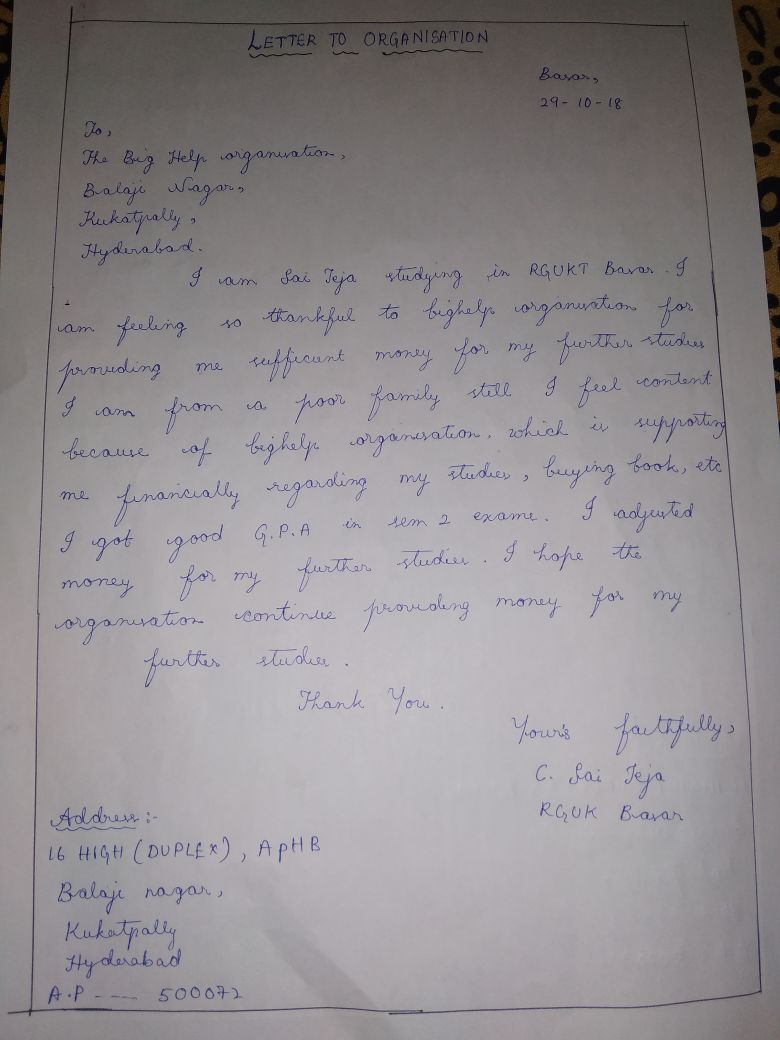 LETTER TO ORGANISATION
Basar,
29-10-18
To,
The Big Help organisation,
Balaji Nagar,
Kukatpally,
Hyderabad.
I am Sai Teja studying in RGUKT Basar. I
am feeling so thankful to bighelp organisation for
providing me sufficient money for my further studies
I am from a poor family still I feel content
because of bighelp organisation, which is supporting
me financially regarding my studies, buying book, etc
I got good G.P.A in sem 2 exams. I adjusted
money for my further studies. I hope the
organisation continue providing money for my
further studies.
Thank You.
Your's faithfully,
C. Sai Teja
RGUK Basar
Address:-
16 HIGH (DUPLEX), APHB
Balaji nagar,
Kukatpally
Hyderabad
A.P ---- 500072